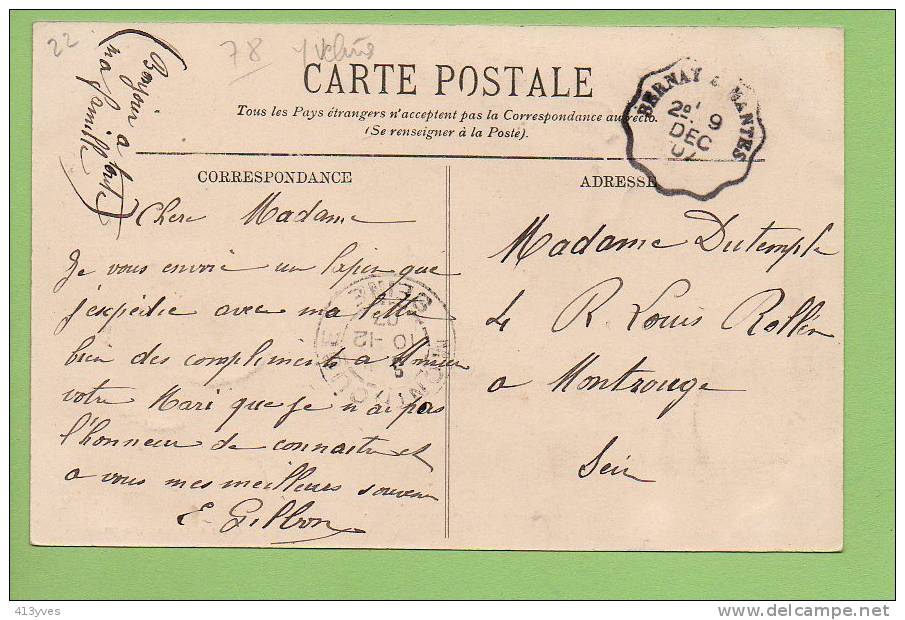 22
78 Yvelines
Bonjour a tout
ma famille
CARTE POSTALE
Tous les Pays étrangers n'acceptent pas la Correspondance au recto.
(Se renseigner à la Poste).
BERNAY A MANTES
2E 9
DEC
07
CORRESPONDANCE
ADRESSE
Chere Madame
Je vous envoie un lapin que
j'expédie avec ma lettre
bien des compliments a
votre Mari que je n'ai pas
l'honneur de connaitre et
a vous mes meilleurs souvenir
E. Gillon
MONTROUGE
10 -12
07
SEINE
Madame Dutemple
4 R. Louis Rollin
a Montrouge
Seine
413yves
www.delcampe.net